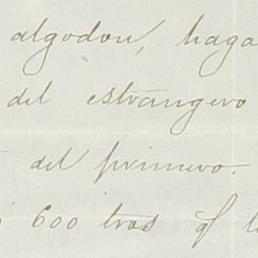 algodon, haga
del estrangero
del primero.
600 tras